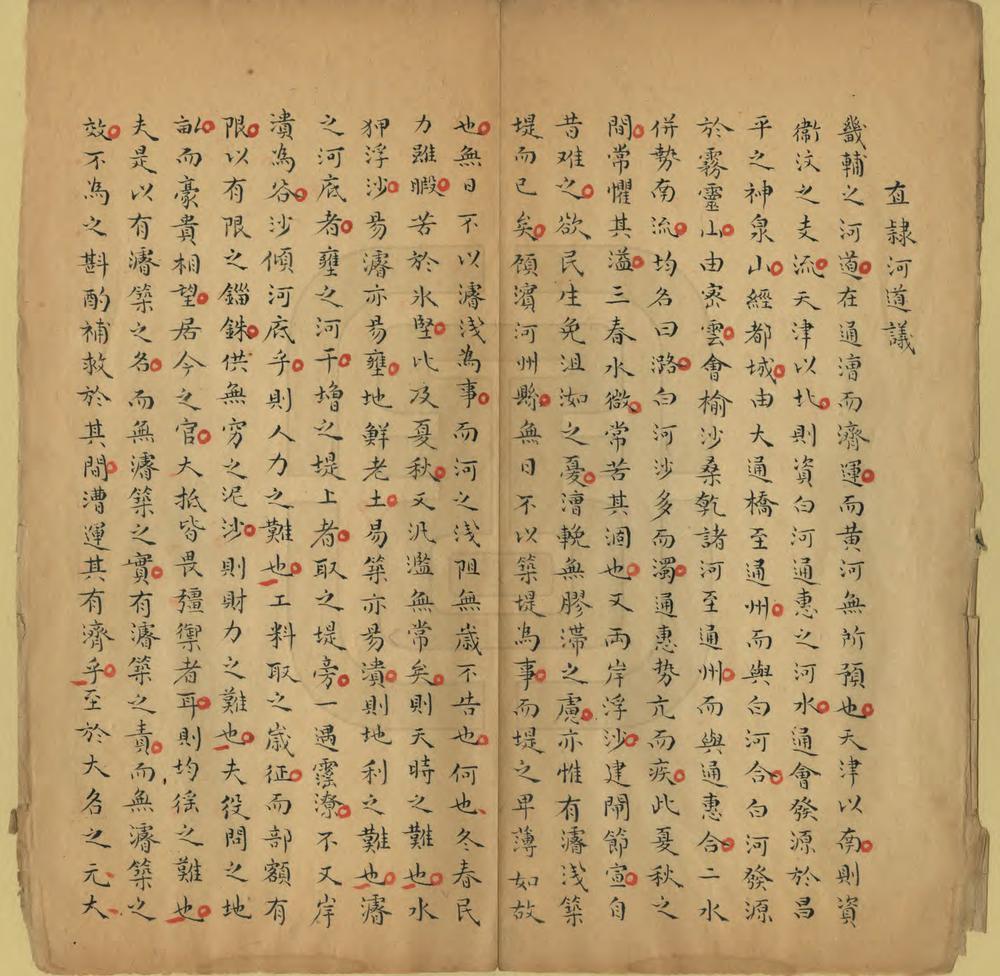 直隷河道議
畿輔之河道在通漕而濟運而黃河無所預也天津以南則資
衞汶之支流天津以北則資白河通惠之河水通會發源於昌
平之神泉山經都城由大通橋至通州而與白河合白河發源
於霧靈山由密雲會榆沙桑乾諸河至通州而與通惠合二水
併勢南流均名曰潞白河沙多而濁通惠势亢而疾此憂秋之
間常懼其溢三春水微常苦其涸也又兩岸浮沙建閘節宣自
昔难之欲民生免沮洳之憂漕輓無膠滯之慮亦惟有濬浅築
堤而已矣頋濱河州縣無日不以築堤為事而堤之卑薄如故
也無日不以濬浅為事而河之浅阻無歲不告也何也冬春民
力雖暇苦於氷堅比及憂秋又汎濫無常矣則天時之難也水
狎浮沙易濬亦易壅地鮮老土易築亦易潰則地利之難也濬
之河底者壅之河干增之堤上者取之堤旁一遇霪潦不又岸
潰為谷沙傾河底乎則人力之難也工料取之歲征而部額有
限以有限之錙銖供無穷之泥沙則財力之難也夫役問之地
畝而豪貴相望居今之官大抵皆畏彊禦者耳則均徭之難也
夫是以有濬築之名而無濬築之實有濬築之責而無濬築之
效不為之斟酌補救於其間漕運其有濟乎至於大名之元大